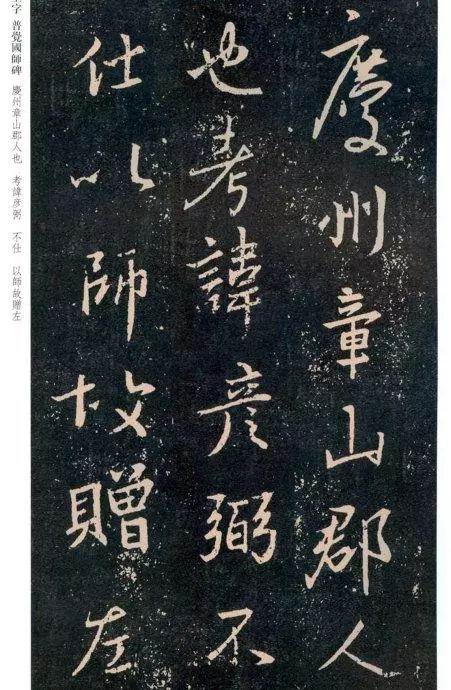 慶州章山郡人
也考諱彦弼不
仕以師故贈左
字 普覺國師碑 慶州章山郡人也 考諱彦弼 不仕 以師故贈左